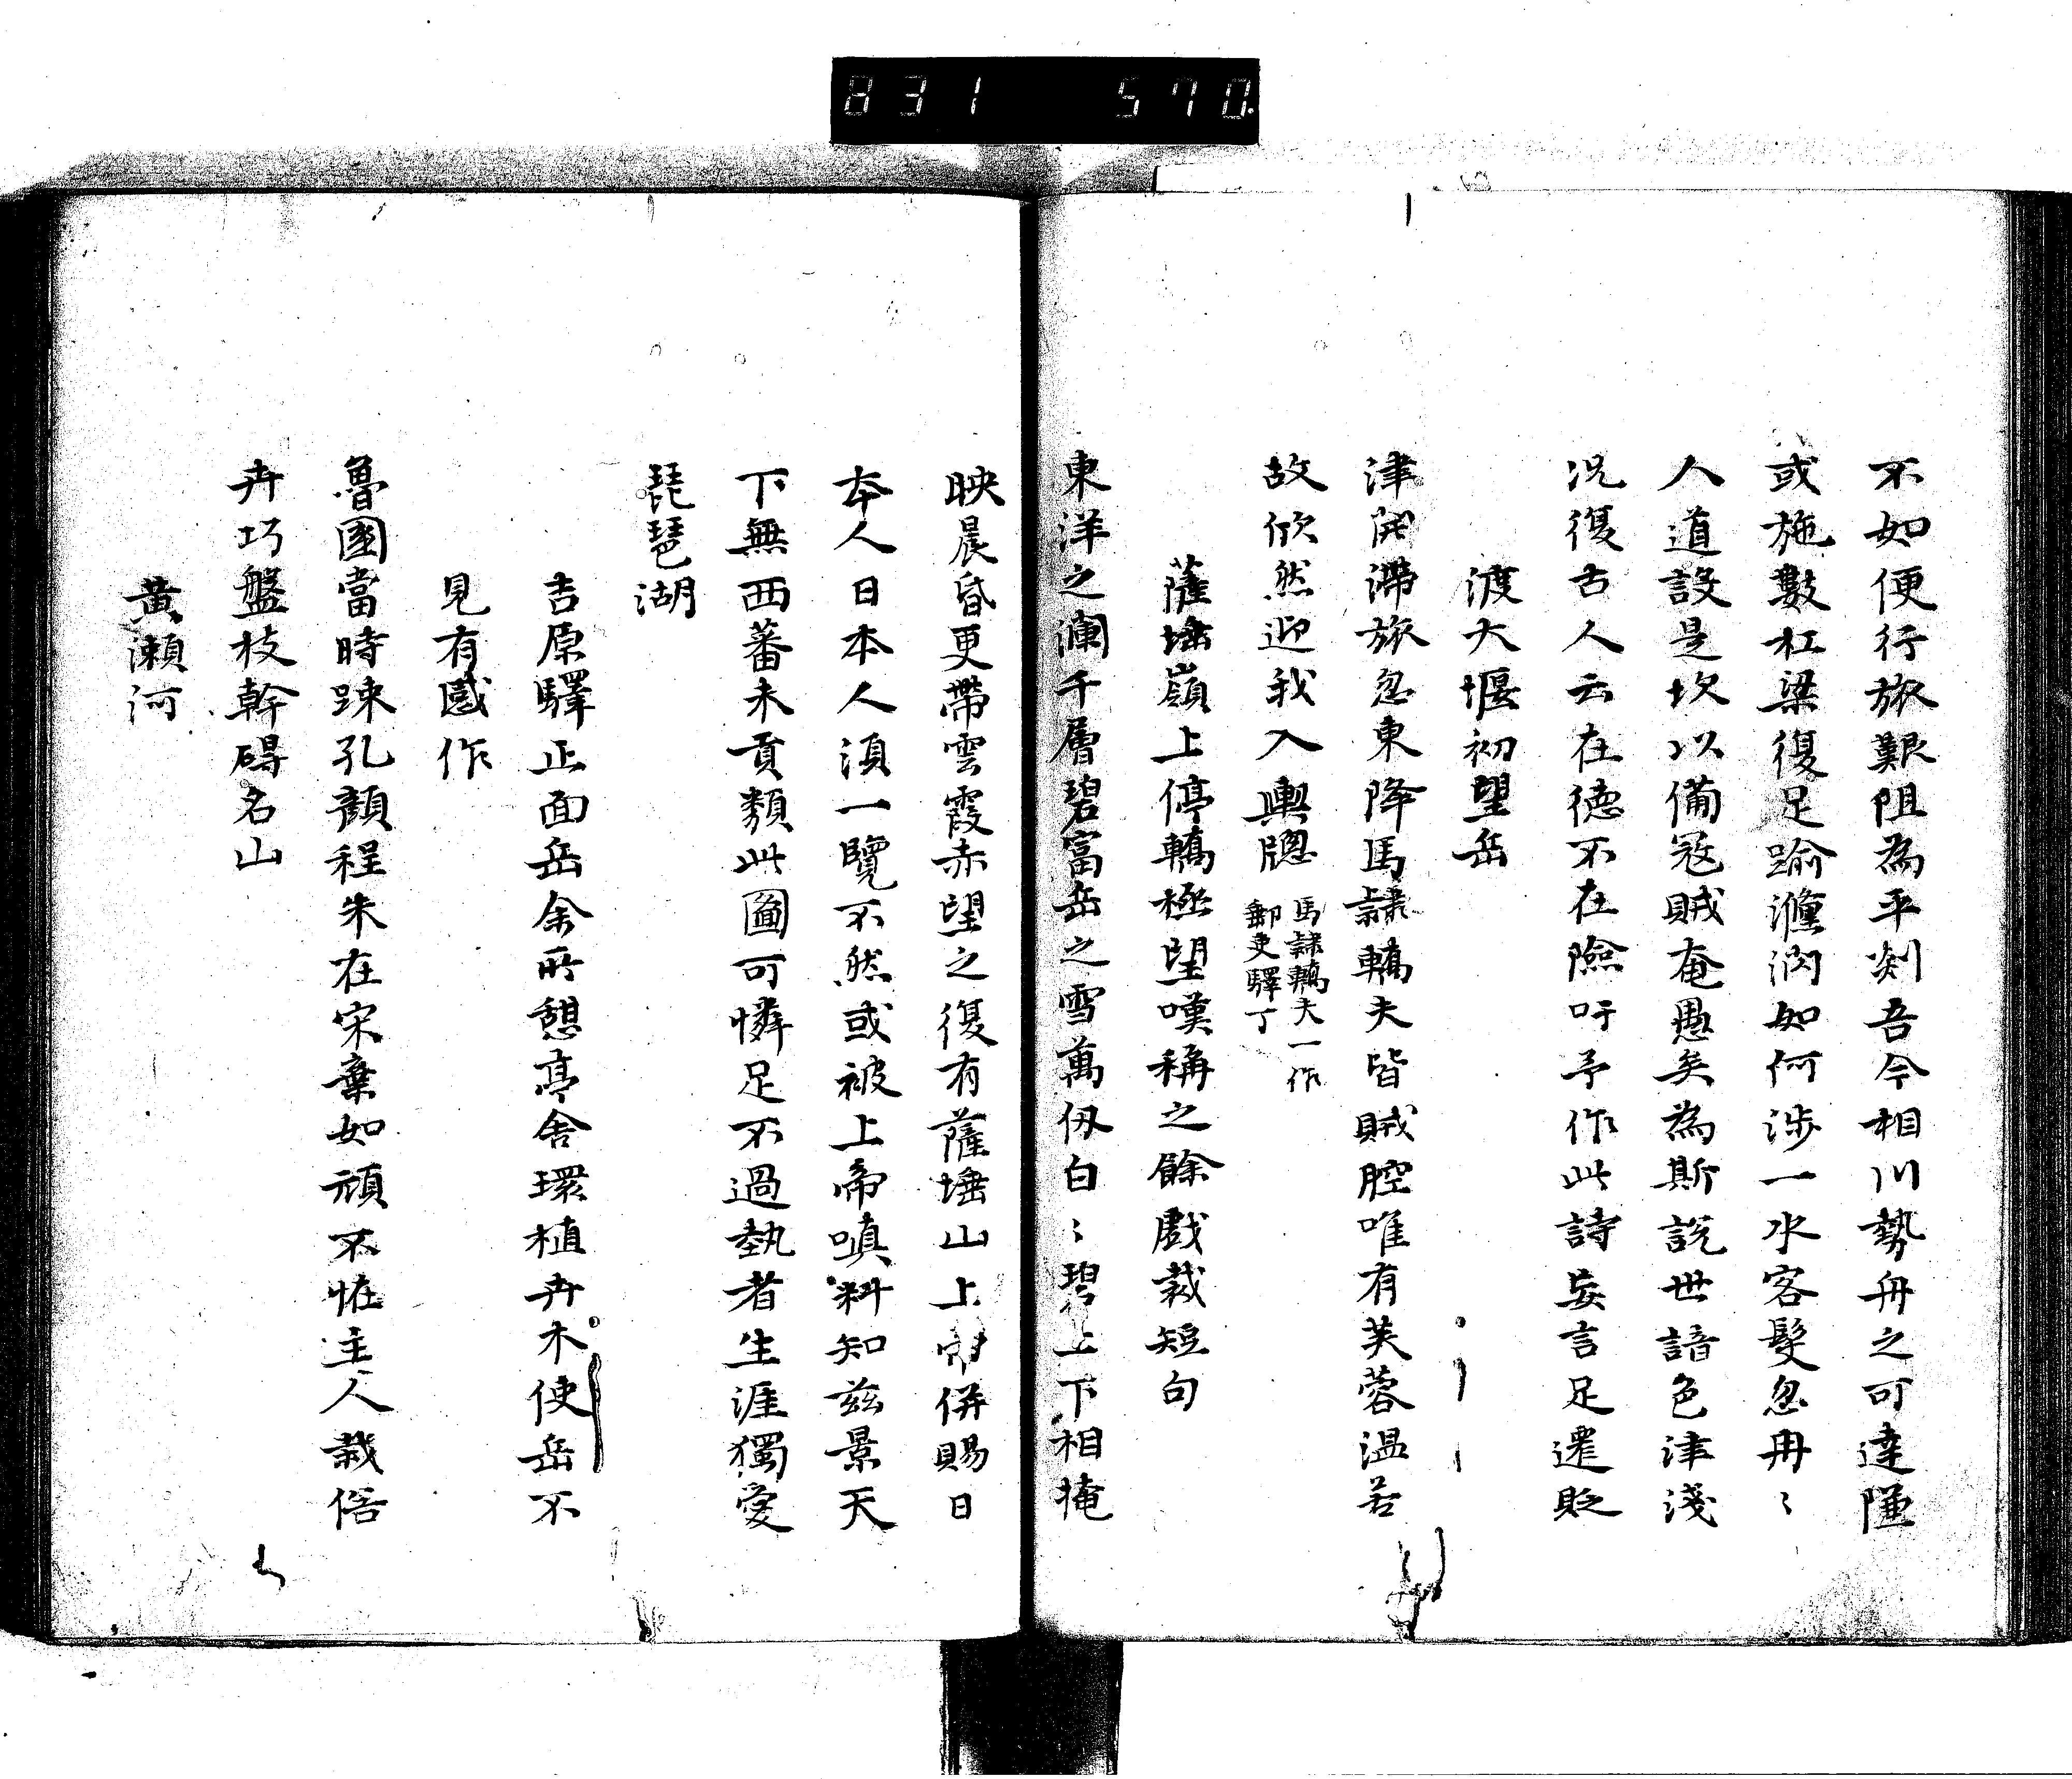 831 570
不如便行旅艱阻為平剡吾今相川勢舟之可達隀
或施數杠梁復足踰灉澗如何涉一水客髮忽冉〻
人道設是坎以備冦賊奄愚矣為斯説世諳色津淺
况復古人云在徳不在險吁予作此詩妄言足遷貶
渡大堰初望岳
津開滯旅忽東降馬隷轎夫皆賊腔唯有芙蓉温若
故欣然迎我入輿牎 馬隷轎夫一作
郵吏驛丁
薩埵嶺上停轎極望嘆稱之餘戯裁短句
東洋之瀾千層碧富岳之雪萬仭白〻碧上下相掩
映晨昏更帶雲霞赤望之復有薩埵山上併賜日
本人日本人須一覽不然或被上帝嗔料知兹景天
下無西蕃未貢類此圖可憐足不過勢者生涯獨愛
琵琶湖
吉原驛正面岳余所憩亭舎環植卉木使岳不
見有感作
魯國當時踈孔顔程朱在宋棄如頑不恠主人栽俗
卉巧盤枝幹碍名山
黄瀬河